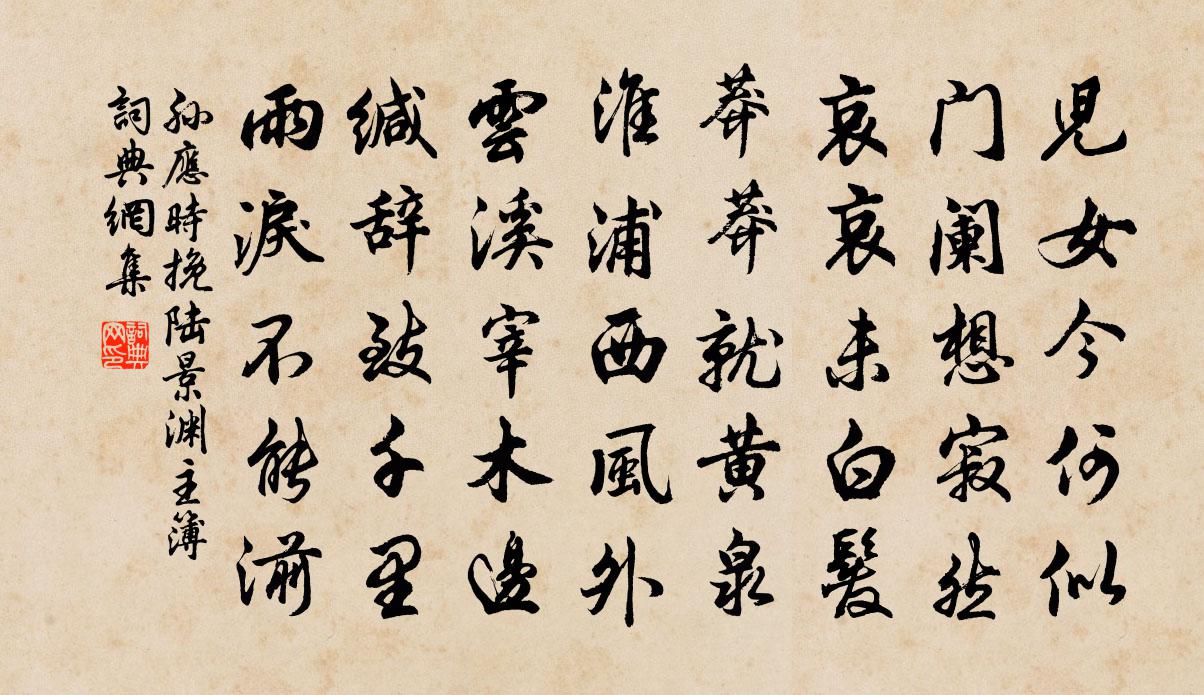 児女今何似
门阑想寂然
哀哀未白髮
莽莽就黄泉
淮浦西風外
雲溪宰木邊
缄辞致千里
雨淚不能湔
孙應時挽陆景渊主簿
詞典網集
詞典网印